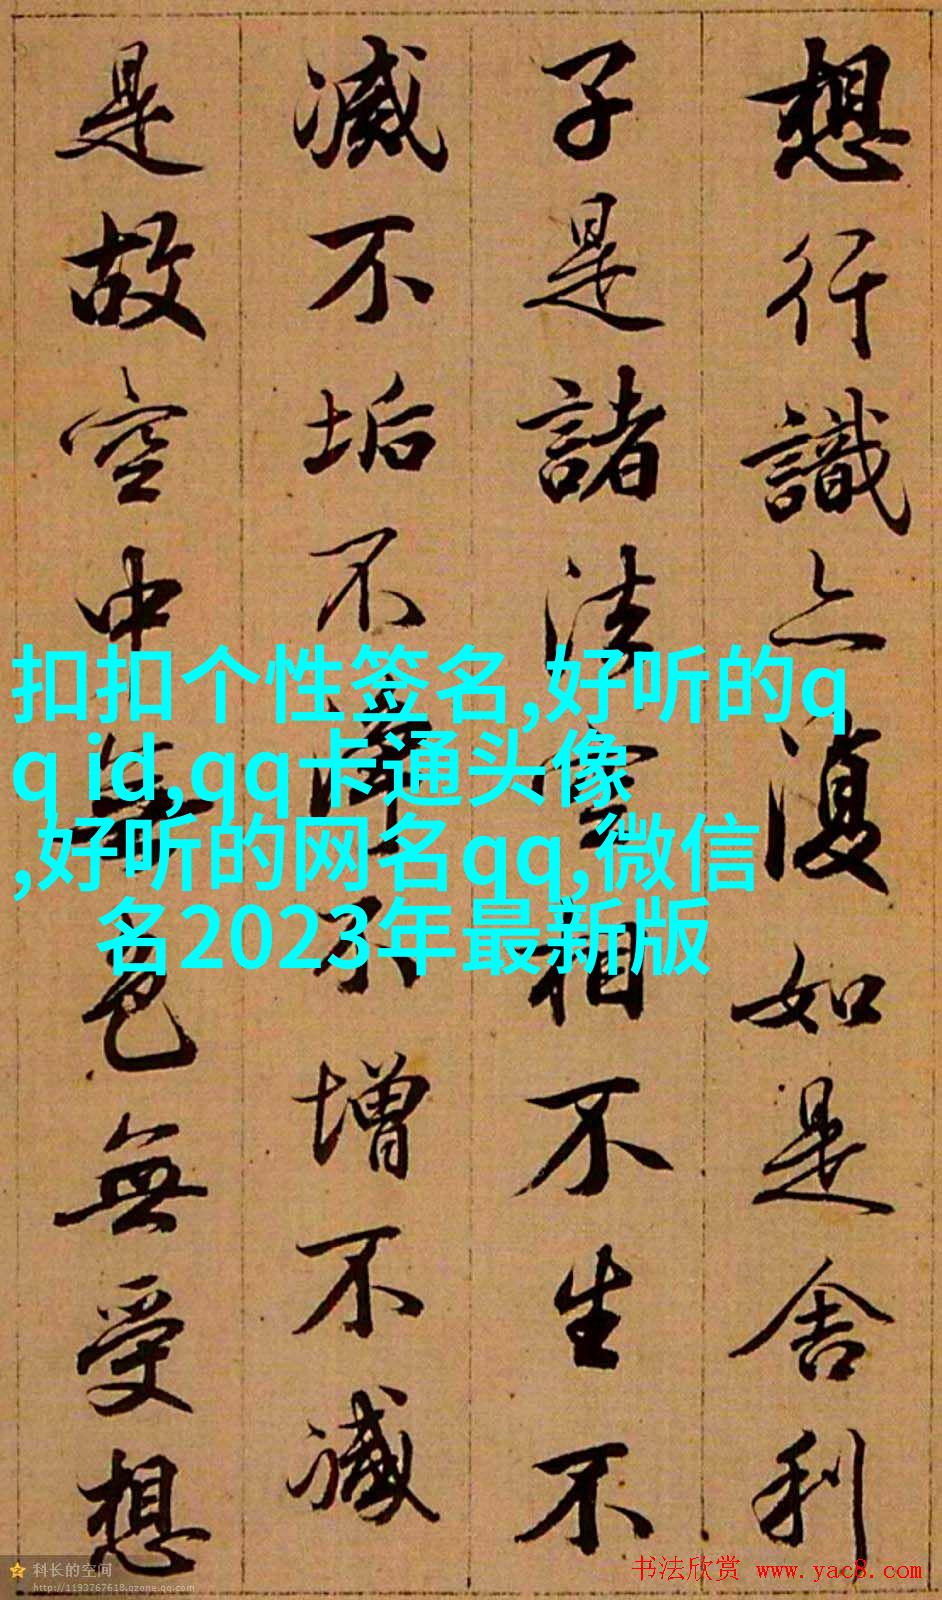 想行識亦復如是舍利
子是諸法空相不生不
滅不垢不淨不增不減
是故空中無色無受想
扣扣个性签名,好听的q
q id,qq卡通头像
,好听的网名qq,微信
名2023年最新版
科长的空间
http://1193767618.qzone.qq.com
书法欣赏 www.yac8.com